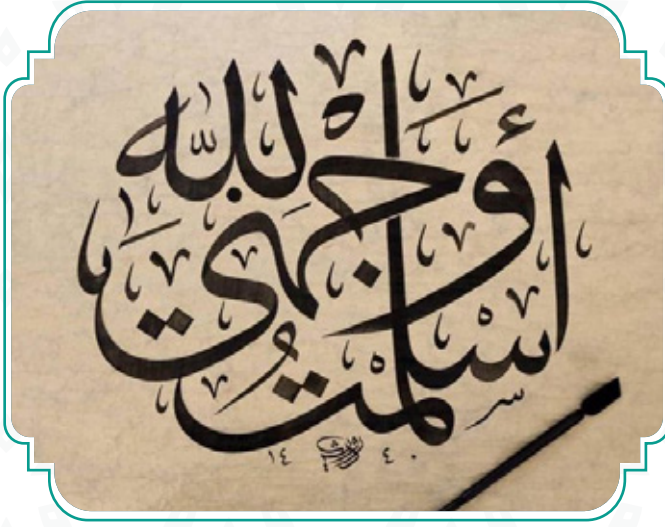 أَسْلَمْتُ وَجْهِيَ لِلَّهِ
١٤٤٠